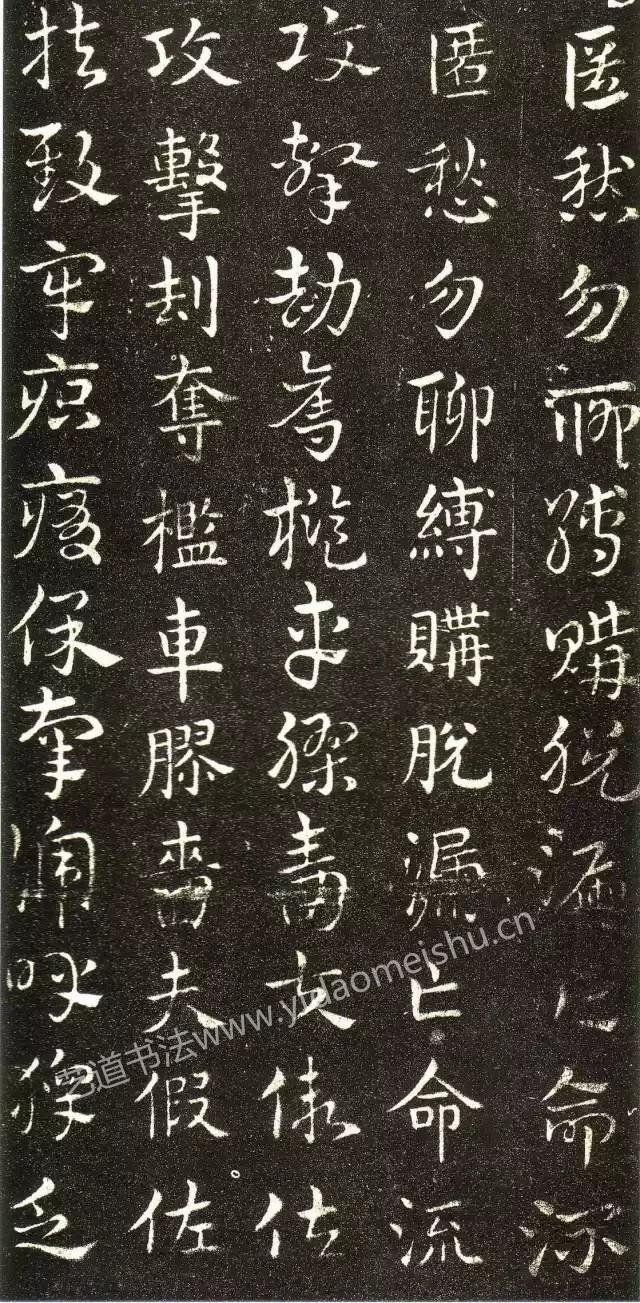 匿愁勿聊縛購脫漏亡命流
匿愁勿聊縛購脫漏亡命流
攻擊劫奪檻車膠嗇夫假佐
攻擊刦奪檻車膠嗇夫假佐
扶致牢疻痏保辜啼呼獆乏
艺道书法www.yidaomeishu.cn